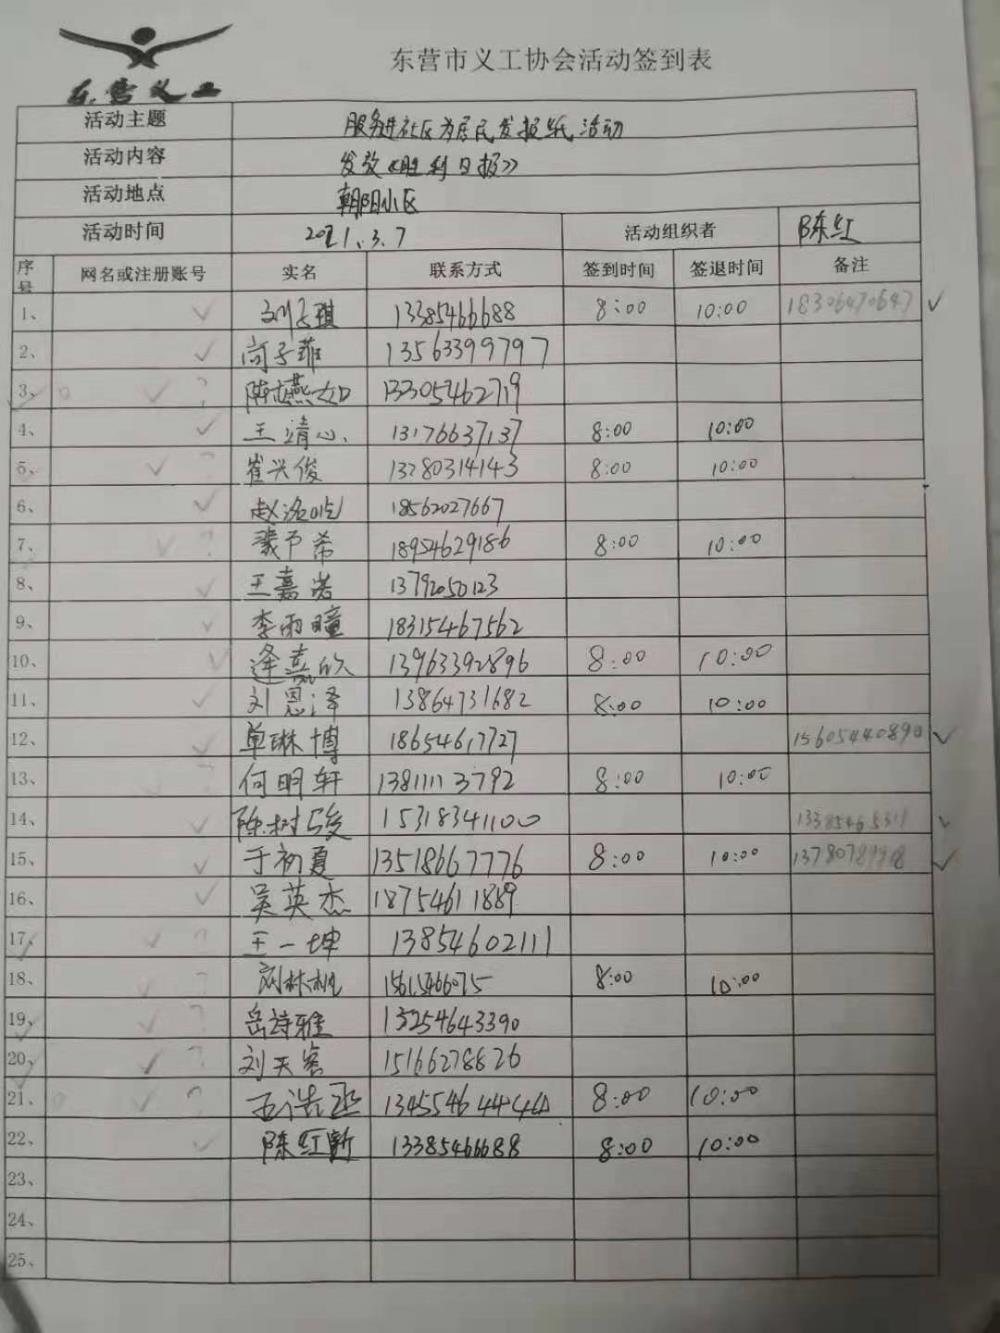 东营义工
东营市义工协会活动签到表
活动主题 服务进社区为居民发报纸活动
活动内容 发放《胜利日报》
活动地点 朝阳小区
活动时间 2021.3.7 活动组织者 陈红
序号 网名或注册账号 实名 联系方式 签到时间 签退时间 备注
1、 ✓ 刘子琪 13385466688 8:00 10:00 18306470647 ✓
2、 ✓ 尚子菲 13563399797
3、 ✓ ? 陈燕如 13305462719
4、 ✓ 王靖心 13176637137 8:00 10:00
5、 ✓ ? 崔兴俊 13280314143 8:00 10:00
6、 ✓ 赵洛屹 18562027667
7、 ✓ ? 裴予希 18954629186 8:00 10:00
8、 ✓ 王嘉诺 13792050123
9、 ✓ 李雨曈 18315467562
10、 ✓ 逄嘉欣 13963392896 8:00 10:00
11、 ✓ 刘恩泽 13864731682 8:00 10:00
12、 ✓ 单琳博 18654617727 15605440890 ✓
13、 ? 何明轩 13811113792 8:00 10:00
14、 ✓ 陈树俊 15318341100 ✓
15、 ✓ 于初夏 13518667776 8:00 10:00 ✓
16、 ✓ 吴英杰 18754611889
17、 ✓ ? 王一坤 13854602111
18、 ✓ ? 8:00 10:00
19、 ✓ ? 岳诗雅 13254643390
20、 ✓ ? 刘天睿 15166278826
21、 ✓ ? 王浩丞 13455464444 8:00 10:00
22、 ✓ 陈红新 13385466688 8:00 10:00
23、
24、
25、